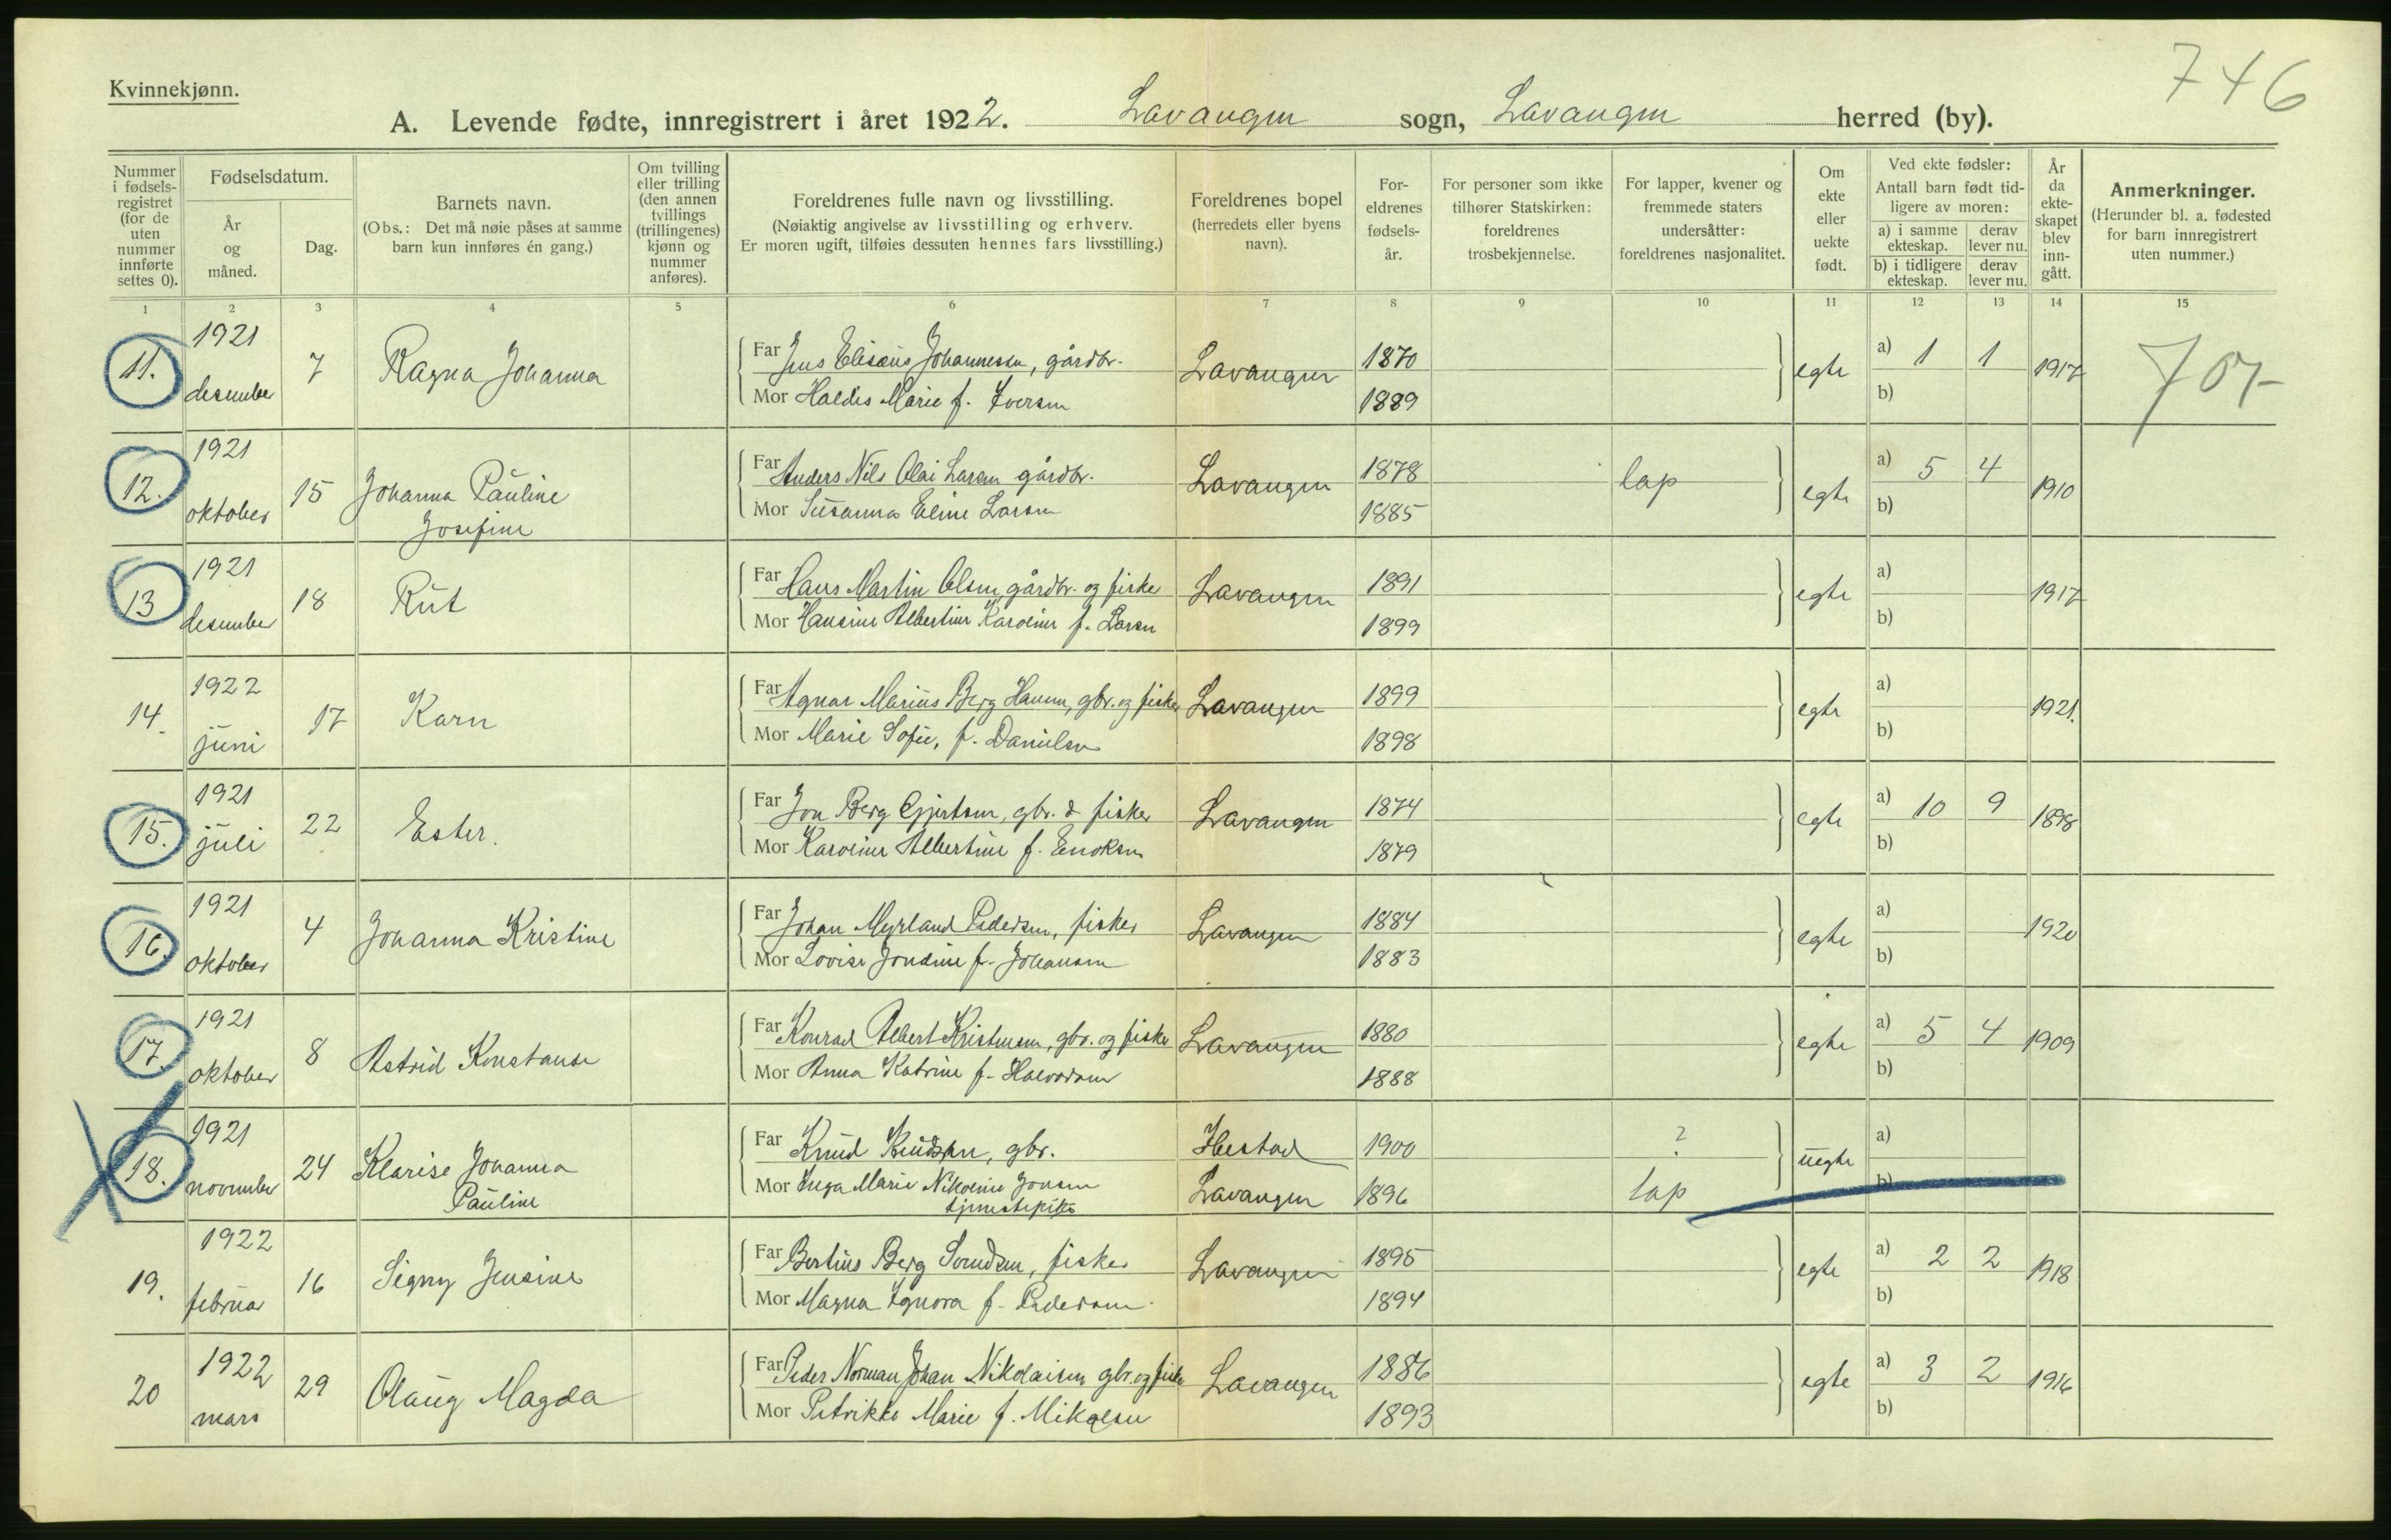 746
Kvinnekjønn.
A. Levende fødte, innregistrert i året 1922. Lavangen sogn, Lavangen herred (by).
Nummer i fødsels-registret (for de uten nummer innførte settes 0).
Fødselsdatum.
År og måned.
Dag.
Barnets navn.
(Obs.: Det må nøie påses at samme barn kun innføres én gang.)
Om tvilling eller trilling (den annen tvillings (trillingenes) kjønn og nummer anføres).
Foreldrenes fulle navn og livsstilling.
(Nøiaktig angivelse av livsstilling og erhverv.
Er moren ugift, tilføies dessuten hennes fars livsstilling.)
Foreldrenes bopel
(herredets eller byens navn).
For-eldrenes fødsels-år.
For personer som ikke tilhører Statskirken: foreldrenes trosbekjennelse.
For lapper, kvener og fremmede staters undersåtter: foreldrenes nasjonalitet.
Om ekte eller uekte født.
Ved ekte fødsler:
Antall barn født tid-ligere av moren:
a) i samme ekteskap.
derav lever nu.
b) i tidligere ekteskap.
derav lever nu.
År da ekte-skapet blev inn-gått.
Anmerkninger.
(Herunder bl. a. fødested for barn innregistrert uten nummer.)
1 2 3 4 5 6 7 8 9 10 11 12 13 14 15
11. 1921 desember 7 Ragna Johanna
Far Jens Elisæus Johannessen, gårdbr. Lavangen 1870 egte a) 1 1 1917
Mor Haldis Marie f. Iversen 1889 b)
12. 1921 oktober 15 Johanna Pauline
Josefine
Far Anders Nils Olai Larsen gårdbr. Lavangen 1878 lap egte a) 5 4 1910
Mor Susanna Eline Larsen 1885 b)
13 1921 desember 18 Rut
Far Hans Martin Olsen gårdbr. og fisker Lavangen 1891 egte a) 1917
Mor Hansine Albertine Karoline f. Larsen 1899 b)
14. 1922 juni 17 Karn
Far Agnar Marius Berg Hansen, gbr. og fisker Lavangen 1899 egte a) 1921.
Mor Marie Sofie, f. Danielsen 1898 b)
15. 1921 juli 22 Ester.
Far Jon Berg Gjertsen, gbr. & fisker Lavangen 1874 egte a) 10 9 1898
Mor Karoline Albertine f. Enoksen 1879 b)
16. 1921 oktober 4 Johanna Kristine
Far Johan Myrland Pedersen, fisker Lavangen 1884 egte a) 1920
Mor Lovise Jondine f. Johansen 1883 b)
17. 1921 oktober 8 Astrid Konstanse
Far Konrad Albert Kristensen, gbr. og fisker Lavangen 1880 egte a) 5 4 1909
Mor Anna Katrine f. Halvorsen 1888 b)
18. 1921 november 24 Klarise Johanna
Pauline
Far Knud Knudsen, gbr. Ibestad 1900 ? uegte a)
Mor Inga Marie Nikoline Jonsen Lavangen 1896 lap b)
tjenestepike
19. 1922 februar 16 Signy Jensine
Far Bertius Berg Svendsen, fisker Lavangen 1895 egte a) 2 2 1918
Mor Magna Ignora f. Pedersen 1894 b)
20 1922 mars 29 Olaug Magda
Far Peder Norman Johan Nikolaisen gbr. og fisker Lavangen 1886 egte a) 3 2 1916
Mor Petrikke Marie f. Mikalsen 1893 b)